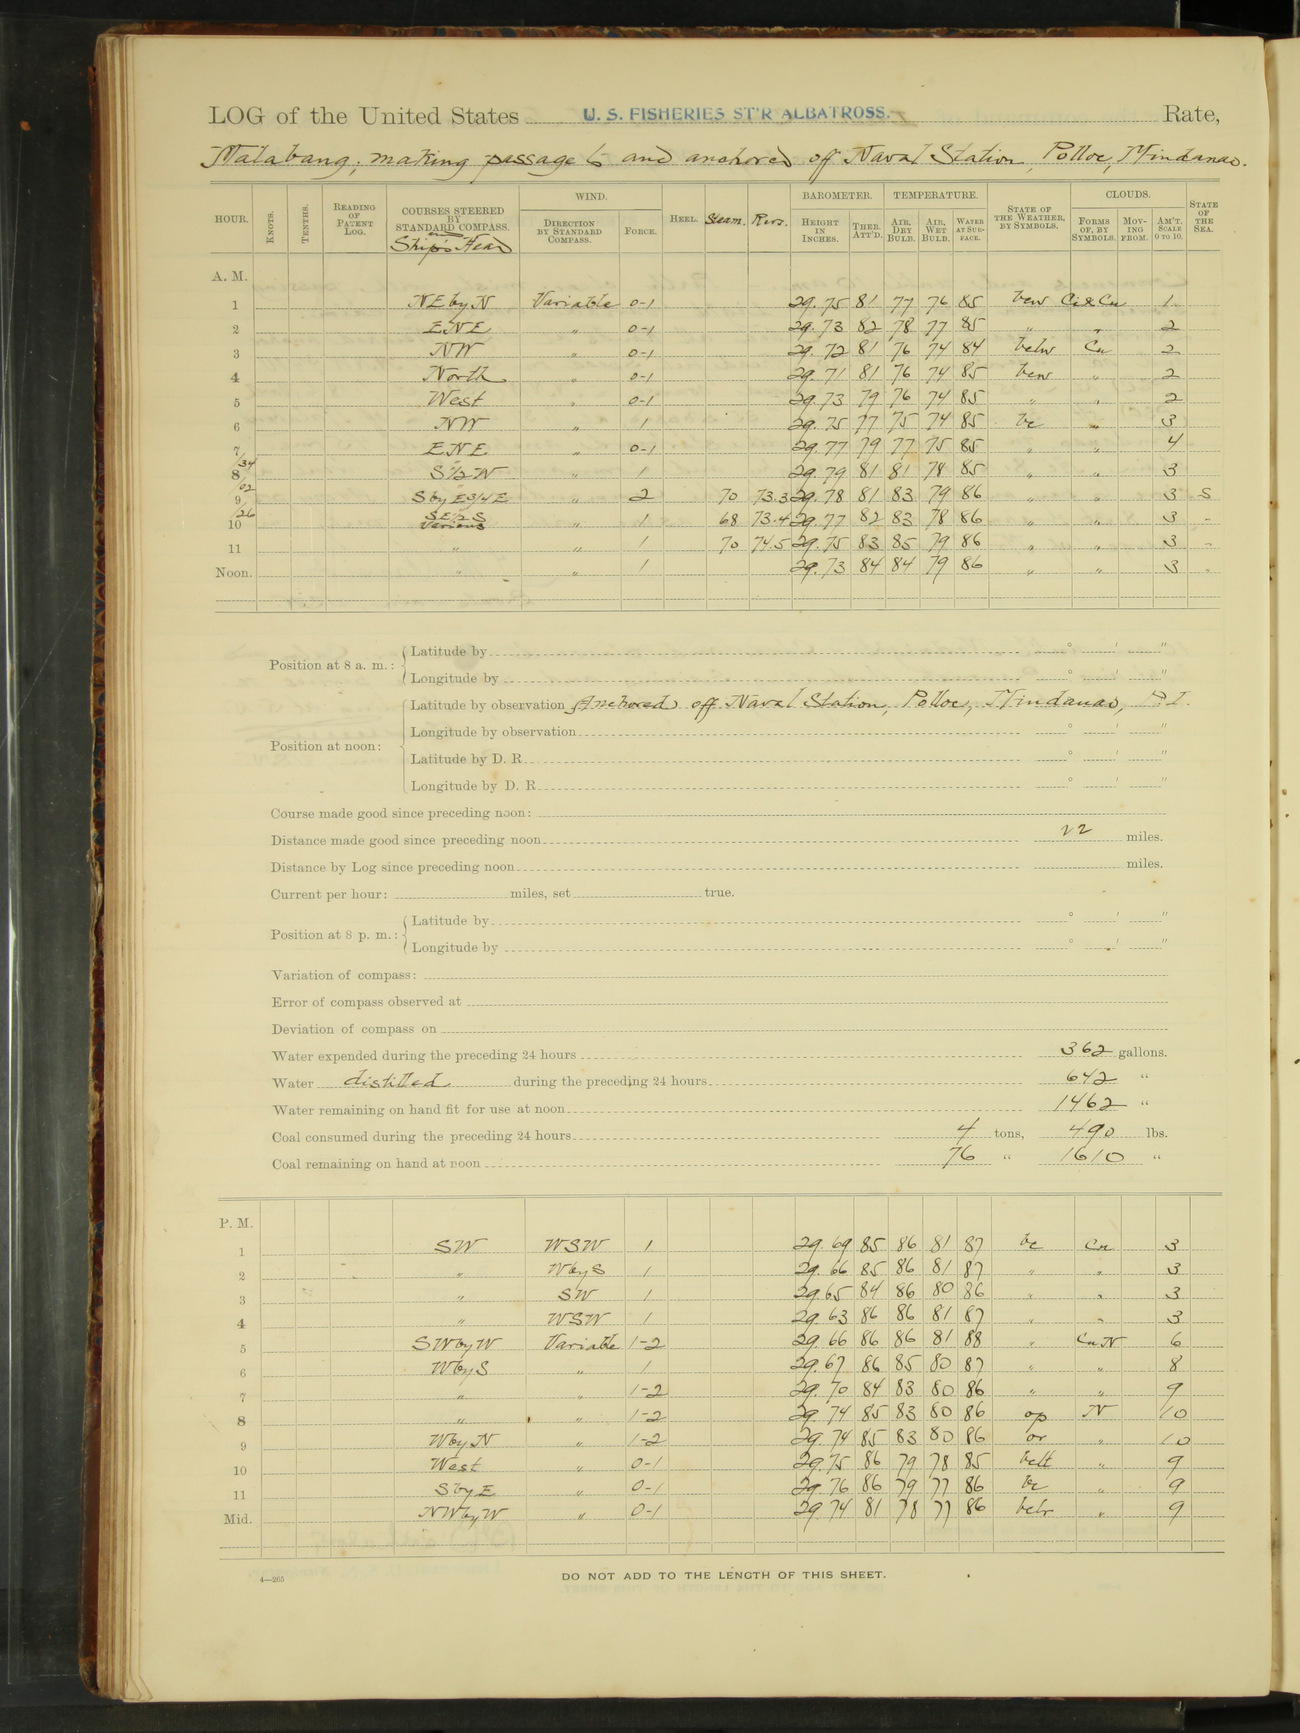 LOG of the United States U. S. FISHERIES ST'R ALBATROSS. Rate,
Malabang; making passage to and anchored off Naval Station, Polloc, Mindanao.
HOUR. KNOTS. TENTHS. READING OF PATENT LOG. COURSES STEERED BY STANDARD COMPASS. and Ship's Head WIND. DIRECTION BY STANDARD COMPASS. FORCE. HEEL. Steam. Revs. BAROMETER. HEIGHT IN INCHES. THER. ATT'D. TEMPERATURE. AIR, DRY BULB. AIR, WET BULB. WATER AT SURFACE. STATE OF THE WEATHER, BY SYMBOLS. CLOUDS. FORMS OF, BY SYMBOLS. MOVING FROM. AM'T. SCALE 0 TO 10. STATE OF THE SEA.
A. M.
1 NE by N Variable 0-1 29.75 81 77 76 85 bcw Ci & Cu 1
2 ENE " 0-1 29.73 82 78 77 85 " " 2
3 NW " 0-1 29.72 81 76 74 84 bclw Cu 2
4 North " 0-1 29.71 81 76 74 85 bcw " 2
5 West " 0-1 29.73 79 76 74 85 " " 2
6 NW " 1 29.75 77 75 74 85 bc " 3
7 ENE " 0-1 29.77 79 77 75 85 " " 4
/34
8 S½W " 1 29.79 81 81 78 85 " " 3
/02
9 S by E 3/4 E " 2 70 73.3 29.78 81 83 79 86 " " 3 S
/26 SE½S
10 Various " 1 68 73.4 29.77 82 83 78 86 " " 3 "
11 " " 1 70 74.5 29.75 83 85 79 86 " " 3 "
Noon. " " 1 29.73 84 84 79 86 " " 3 "
Position at 8 a. m.: Latitude by ° ' "
Longitude by ° ' "
Position at noon: Latitude by observation Anchored off Naval Station, Polloc, Mindanao, P.I.
Longitude by observation ° ' "
Latitude by D. R. ° ' "
Longitude by D. R. ° ' "
Course made good since preceding noon:
Distance made good since preceding noon 22 miles.
Distance by Log since preceding noon miles.
Current per hour: miles, set true.
Position at 8 p. m.: Latitude by ° ' "
Longitude by ° ' "
Variation of compass:
Error of compass observed at
Deviation of compass on
Water expended during the preceding 24 hours 362 gallons.
Water distilled during the preceding 24 hours 642 "
Water remaining on hand fit for use at noon 1462 "
Coal consumed during the preceding 24 hours 4 tons, 490 lbs.
Coal remaining on hand at noon 76 " 1610 "
P. M.
1 SW WSW 1 29.69 85 86 81 87 bc Cu 3
2 " W by S 1 29.66 85 86 81 87 " " 3
3 " SW 1 29.65 84 86 80 86 " " 3
4 " WSW 1 29.63 86 86 81 87 " " 3
5 SW by W Variable 1-2 29.66 86 86 81 88 " Cu N 6
6 W by S " 1 29.67 86 85 80 87 " " 8
7 " " 1-2 29.70 84 83 80 86 " " 9
8 " " 1-2 29.74 85 83 80 86 op N 10
9 W by N " 1-2 29.74 85 83 80 86 or " 10
10 West " 0-1 29.75 86 79 78 85 bclt " 9
11 S by E " 0-1 29.76 86 79 77 86 bc " 9
Mid. NW by W " 0-1 29.74 81 78 77 86 bclr " 9
4—265
DO NOT ADD TO THE LENGTH OF THIS SHEET.